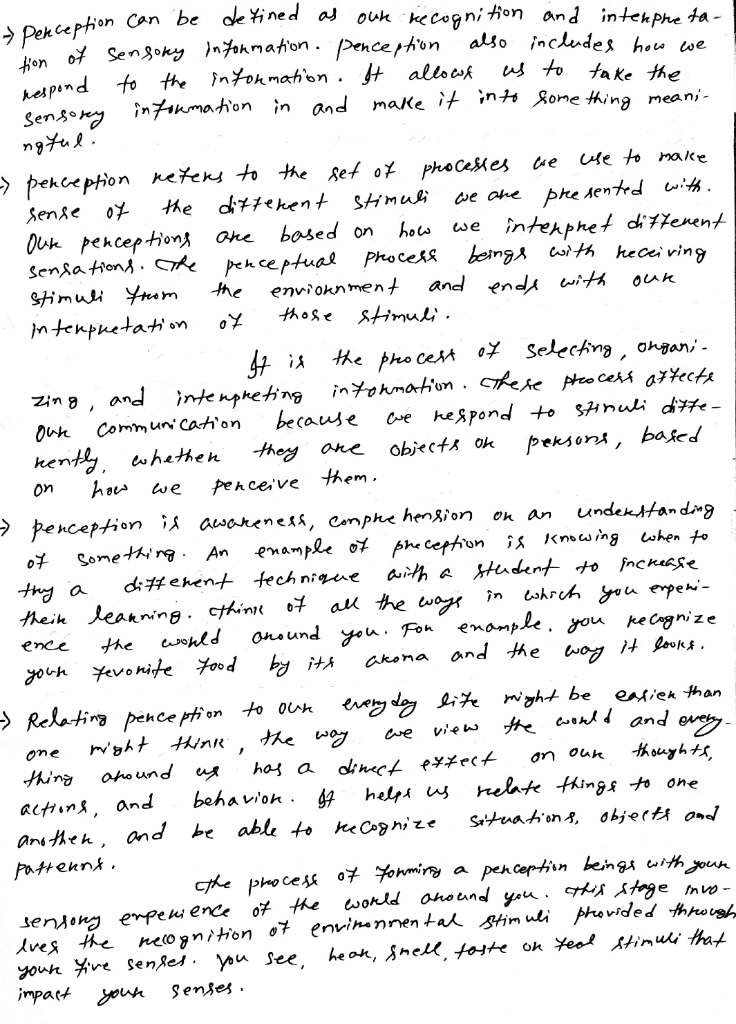 → Perception can be defined as our recognition and interpreta-
tion of sensory information. Perception also includes how we
respond to the information. It allows us to take the
sensorey information in and make it into something meani-
ngful.
→ perception refers to the set of processes we use to make
sense of the different stimuli we are presented with.
Our perceptions are based on how we interpret different
sensations. The perceptual process beings with receiving
stimuli from the enviornment and ends with our
interpretation of those stimuli.
It is the process of selecting, organi-
zing, and interpreting information. These process affects
our communication because we respond to stimuli diffe-
rently, whether they are objects or persons, based
on how we perceive them.
→ perception is awareness, comprehension or an understanding
of something. An example of preception is knowing when to
try a different technique with a student to increase
their learning. Think of all the ways in which you experi-
ence the world around you. For example, you recognize
your fevorite food by its aroma and the way it looks.
→ Relating perception to our everyday life might be easier than
one might think, the way we view the world and every-
thing around us has a direct effect on our thoughts,
actions, and behavior. It helps us relate things to one
another, and be able to recognize situations, objects and
patterns.
The process of forming a perception beings with your
sensory experience of the world around you. This stage invo-
lves the recognition of environmental stimuli provided through
your five senses. You see, hear, smell, taste or feel stimuli that
impact your senses.